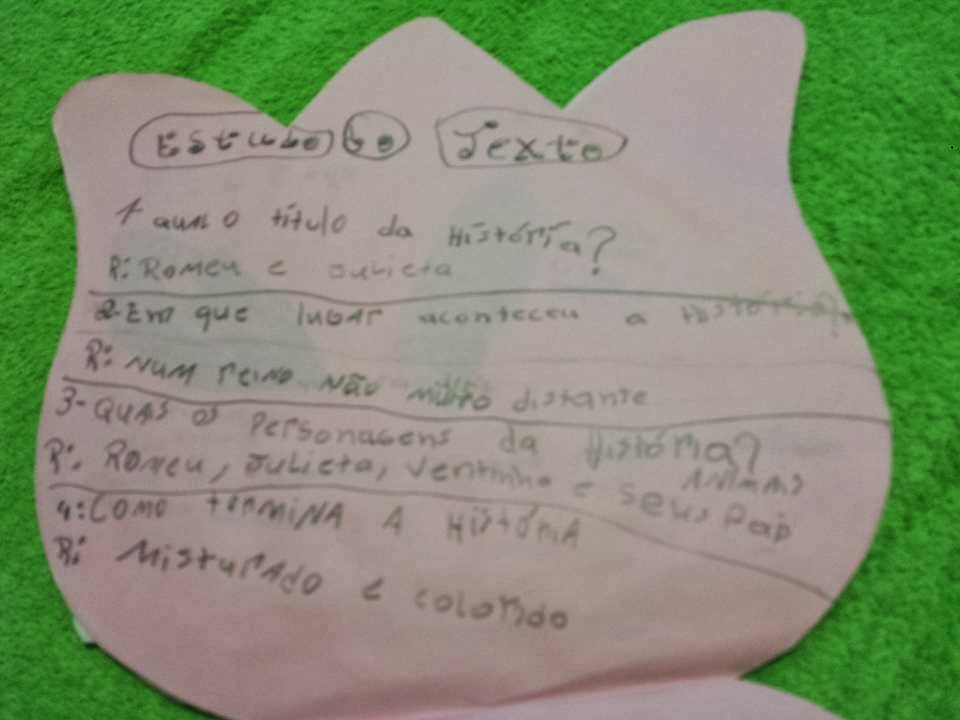 Estudo do Texto
1- qual o título da História?
R: Romeu e Julieta
2-Em que lugar aconteceu a História?
R: Num reino não muito distante
3-Quais os Personagens da História?
R: Romeu, Julieta, Ventinho e seus Pais
ANIMAIS
4: Como termina A História
R: Misturado e colorido